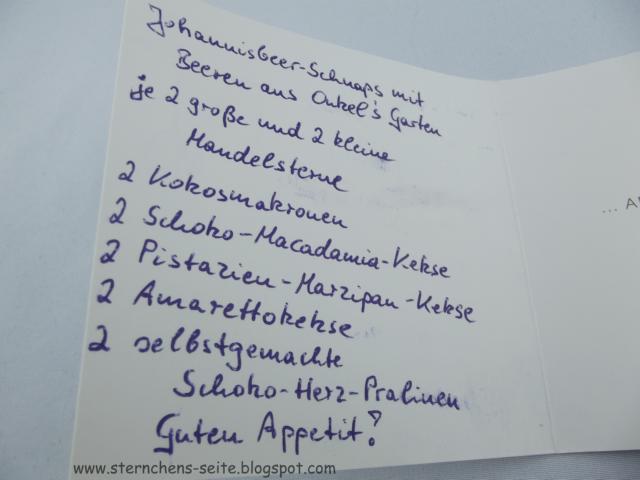 Johannisbeer-Schnaps mit
Beeren aus Onkel's Garten
je 2 große und 2 kleine
Mandelsterne
2 Kokosmakronen
2 Schoko-Macadamia-Kekse
2 Pistazien-Marzipan-Kekse
2 Amarettokekse
2 selbstgemachte
Schoko-Herz-Pralinen
Guten Appetit!
www.sternchens-seite.blogspot.com